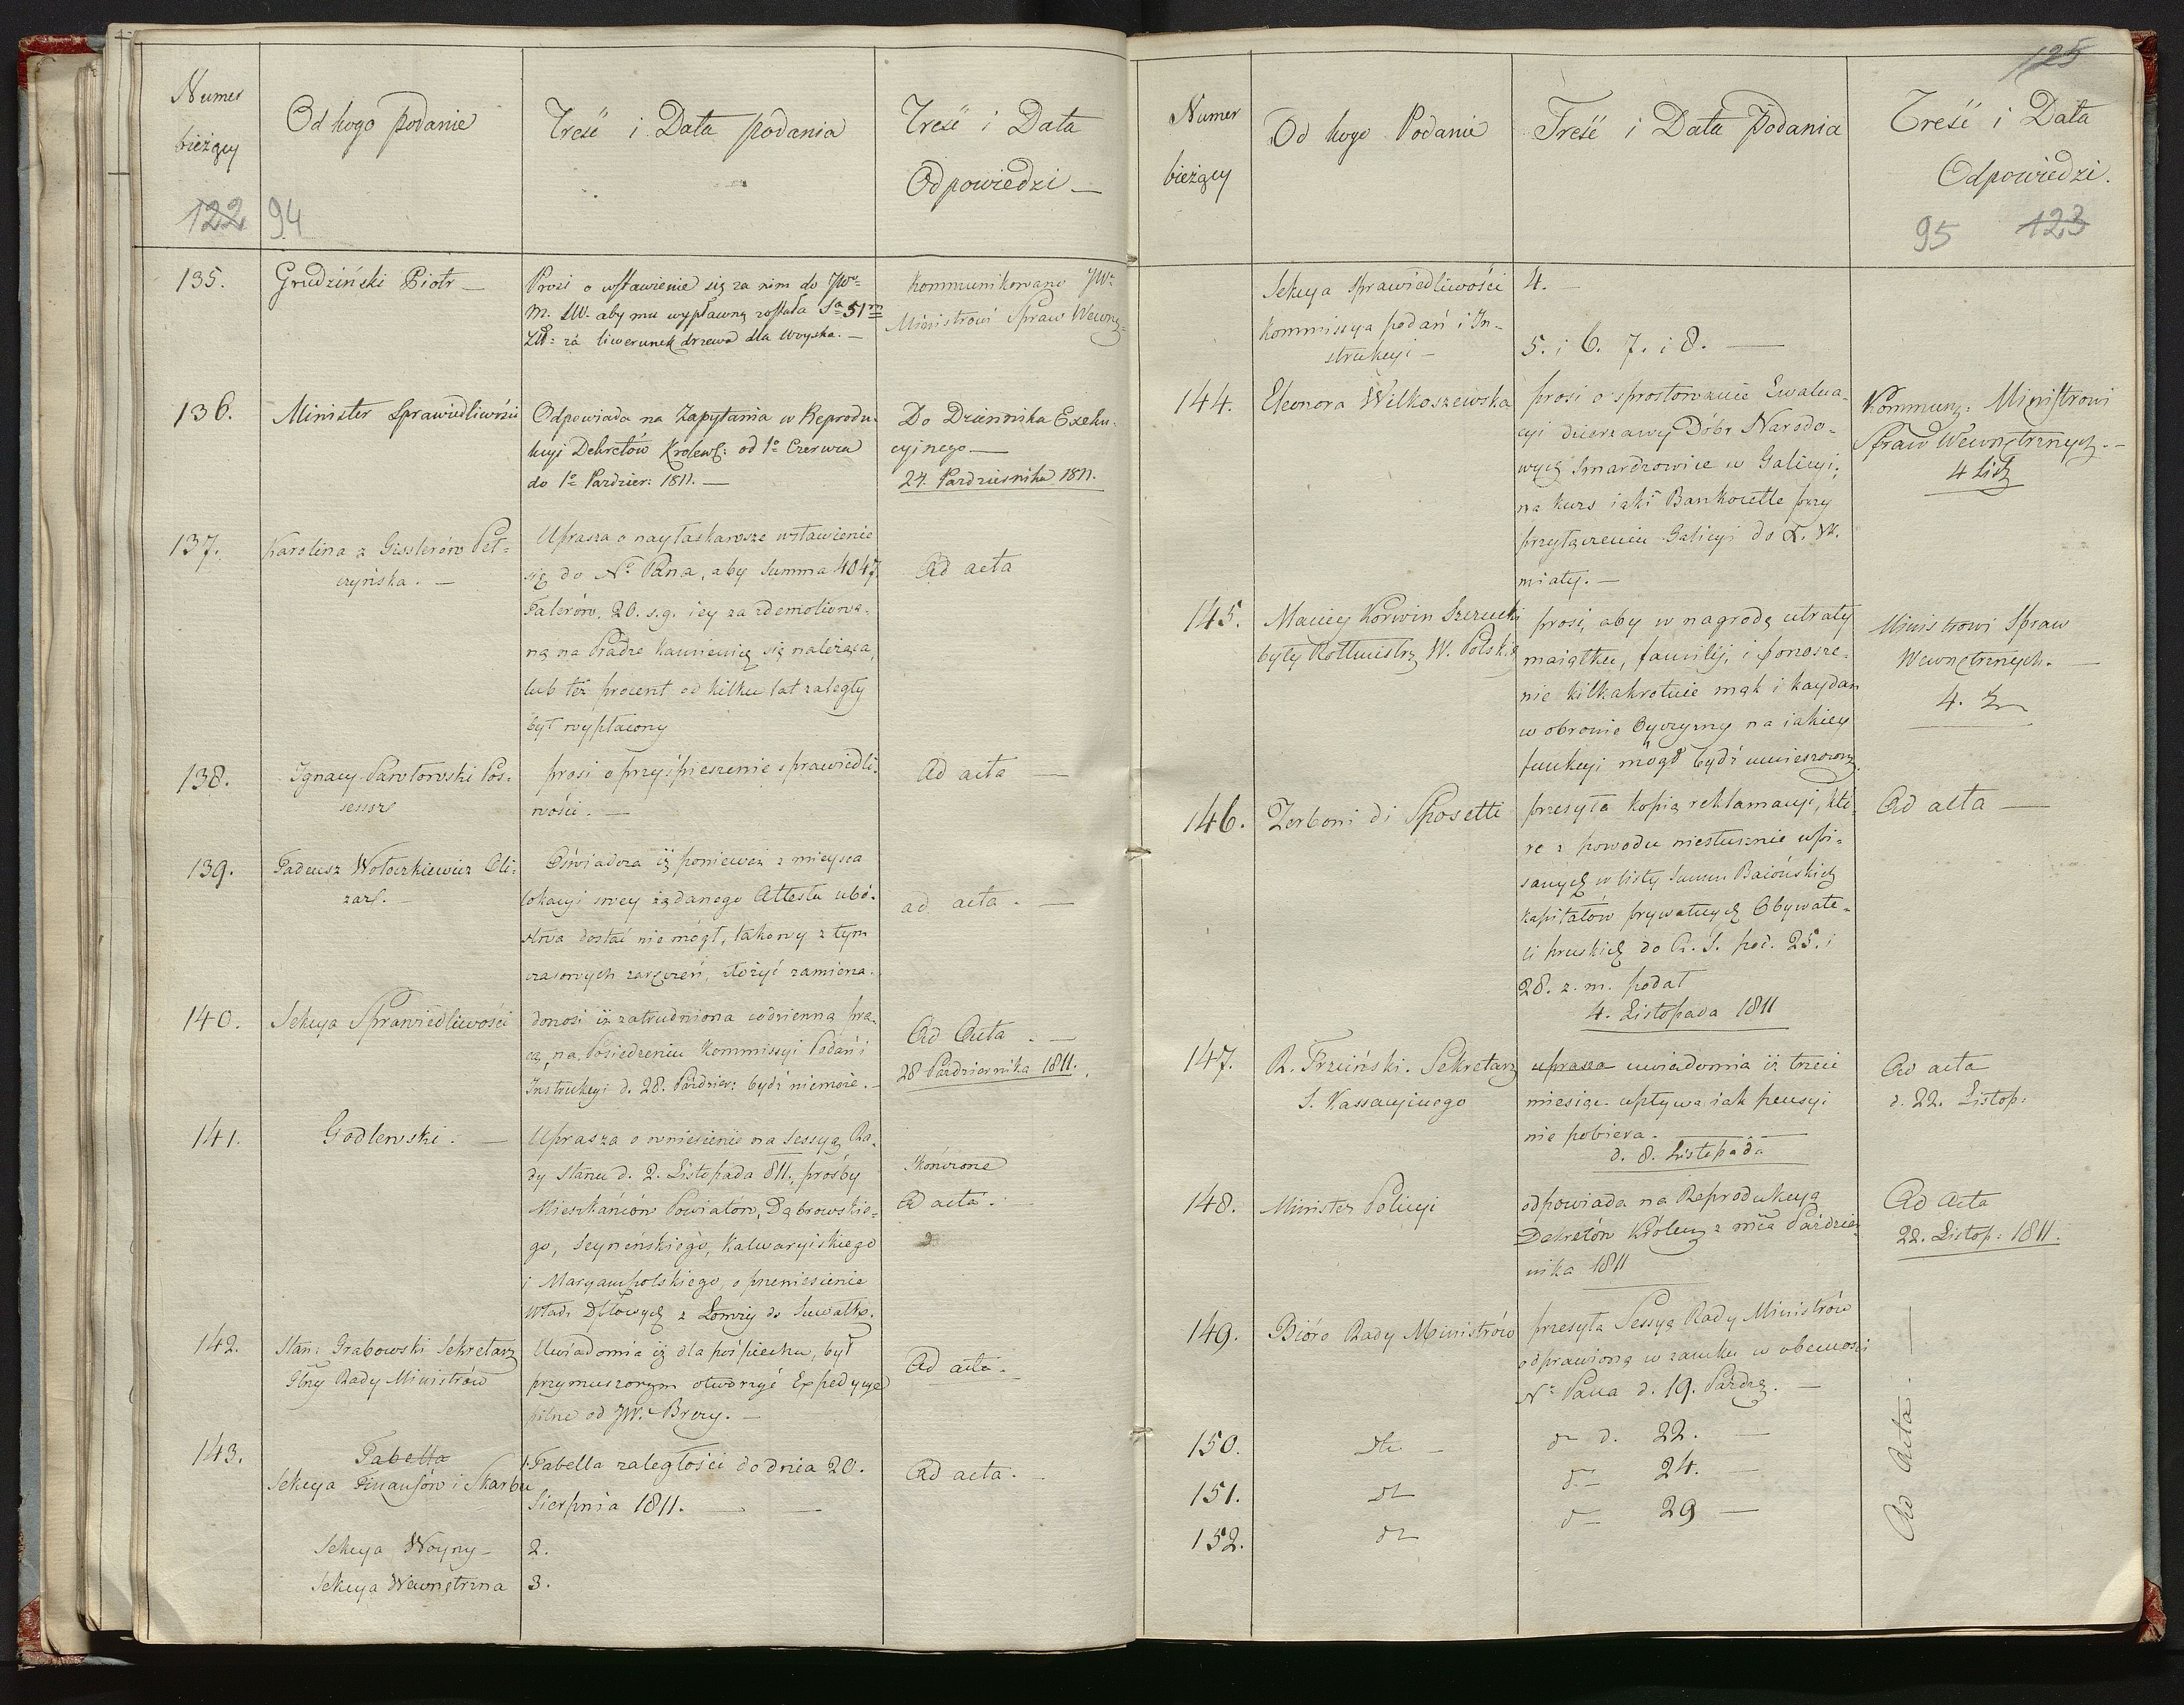 Numer
bieżący
Od kogo podanie
Treść i Data podania
Treść i Data
Odpowiedzi —
122 94
135.
Grudziński Piotr —
Prosi o wstawienie się za nim do JW
M. SW. aby mu wypłaconą została Sa 51
Zł: za liwerunek drzewa dla woyska. —
Kommunikowano JW.
Ministrowi Spraw Wewnę-
136.
Minister Sprawiedliwości
Odpowiada na Zapytania w Reprodu-
kcyi Dekretów Krolews: od 1o Czerwca
do 1o Pazdzier: 1811. —
Do Dziennika Exeku-
cyinego —
24. Pazdziernika 1811.
137.
Karolina z Gisslerów Peł-
czyńska. —
Uprasza o nayłaskawsze wstawienie
się do No Pana, aby Summa 4047.
Talerów. 20. s.g. iey za zdemoliowa-
ną na Pradze Kamienicę się należąca,
lub też procent od kilku lat zaległy
był wypłacony
Ad acta
138.
Ignacy Pawłowski Pos-
sessor
prosi o przyśpieszenie sprawiedli-
wości. —
Ad acta —
139.
Tadeusz Wołoczkiewicz Oli-
zar. —
Oświadcza iż ponieważ z mieysca
lokacyi swey żądanego Attestu ubó-
stwa dostać nie mógł, takowy z tym
czasowych zaręczeń, złożyć zamierza.
ad acta. —
140.
Sekcya Sprawiedliwości
donosi iż zatrudniona codzienną pra-
cą, na Posiedzeniu Kommissyi Podań i
Instrukcyi d. 28. Paździer: bydź niemoże. —
Ad Acta. —
28 Październiка 1811.
141.
Godlewski. —
Uprasza o wniesienie na Sessyą Ra-
dy Stanu d. 2. Listopada 811., prośby
Mieszkańców Powiatów, Dąbrowskie-
go, Seyneńskiego, Kalwaryiskiego
i Maryampolskiego, o przeniesienie
Władz Dptowych z Łomży do Suwałk.
Skończone
Ad acta.
142.
Stan: Grabowski Sekretarz
Glny Rady Ministrów
Uwiadomia iż dla pośpiechu, był
przymuszonym otworzyć Expedycye
pilne od JW. Brezy. —
Ad acta. —
143.
Tabella
Sekcya Finansów i Skarbu
1. Tabella zaległości do dnia 20.
Sierpnia 1811. — —
Ad acta. —
Sekcya Woyny —
2.
Sekcya Wewnętrzna
3.
125
Numer
bieżący
Od kogo Podanie
Treść i Data Podania
Treść i Data
Odpowiedzi.
95 123
Sekcya Sprawiedliwości
4. —
Kommissya podań i In-
strukcyi —
5. i 6. 7. i 8. —
144.
Eleonora Wilkoszewska
prosi o sprostowanie Ewalua-
cyi dzierżawy Dóbr Narodo-
wych Smardzowice w Galicyi,
na kurs iaki Bankocetle przy
przyłączeniu Galicyi do X. W.
miały. —
Kommunik: Ministrowi
Spraw Wewnętrznych. —
4 List
145.
Maciey Korwin Szczucki
były Rottmistrz W. Polskie
prosi, aby w nagrodę utraty
maiątku, familij, i ponosze-
nie kilkakrotnie mąk i kaydan
w obronie Oyczyzny na iakiey
funkcyi mógł bydź umieszczony.
Ministrowi Spraw
Wewnętrznych. —
4.
146.
Zerboni di Sposetti
przesyła kopią reklamacyi, któ-
re z powodu niesłusznie wpi-
sanych w listy Summ Baiońskich
kapitałów prywatnych Obywate-
li pruskich do R. S. pod. 25. i
28. z. m. podał
4. Listopada 1811
Ad acta —
147.
R. Trzciński. Sekretarz
S. Kassacyinego
uprasza uwiadomia iż trzeci
miesiąc upływa iak pensyi
nie pobiera. —
d. 8. Listopada
Ad acta
d. 22. Listop:
148.
Minister Policyi
odpowiada na Reprodukcyą
Dekretów Królews z mca Paździer-
nika 1811
Ad Acta
22. Listop: 1811.
149.
Bióro Rady Ministrów
przesyła Sessyą Rady Ministrów
odprawioną w zamku w obecności
No Pana d. 19. Paźdz. —
150.
dto —
do d. 22. —
151.
dto
do 24. —
152.
dto
do 29 —
Ad Acta. —